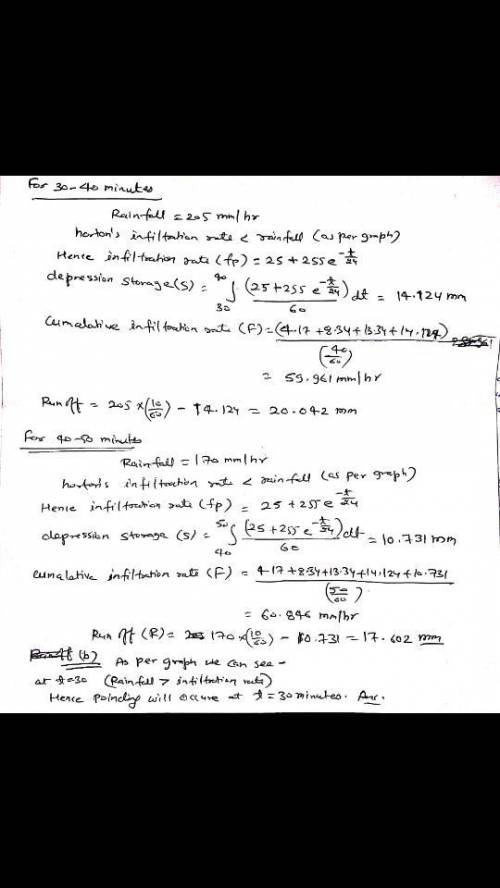 For 30-40 minutes
Rainfall = 205 mm/hr
horton's infiltration rate < rainfall (as per graph)
Hence infiltration rate (fp) = 25 + 255 e^(-t/24)
depression storage (s) = ∫_30^40 (25 + 255 e^(-t/24))/60 dt = 14.124 mm
Cumulative infiltration rate (F) = (4.17 + 8.34 + 13.34 + 14.124)/(40/60)
= 59.961 mm/hr
Run off = 205 × (10/60) - 14.124 = 20.042 mm
For 40-50 minutes
Rainfall = 170 mm/hr
horton's infiltration rate < rainfall (as per graph)
Hence infiltration rate (fp) = 25 + 255 e^(-t/24)
depression storage (s) = ∫_40^50 (25 + 255 e^(-t/24))/60 dt = 10.731 mm
cumalative infiltration rate (F) = (4.17 + 8.34 + 13.34 + 14.124 + 10.731)/(50/60)
= 60.846 mm/hr
Run off (R) = 170 × (10/60) - 10.731 = 17.602 mm
(b) As per graph we can see -
at t=30 (Rainfall > infiltration rate)
Hence poinding will occure at t = 30 minutes. Ans.